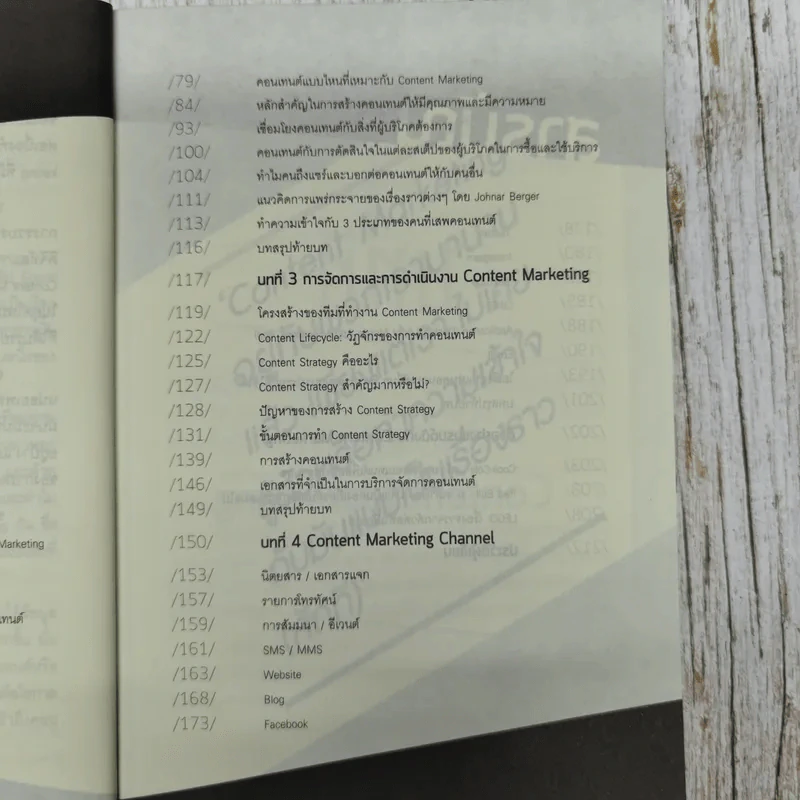 /79/ คอนเทนต์แบบไหนที่เหมาะกับ Content Marketing
/84/ หลักสำคัญในการสร้างคอนเทนต์ให้มีคุณภาพและมีความหมาย
/93/ เชื่อมโยงคอนเทนต์กับสิ่งที่ผู้บริโภคต้องการ
/100/ คอนเทนต์กับการตัดสินใจในแต่ละสเต็ปของผู้บริโภคในการซื้อและใช้บริการ
/104/ ทำไมคนถึงแชร์และบอกต่อคอนเทนต์ให้กับคนอื่น
/111/ แนวคิดการแพร่กระจายของเรื่องราวต่างๆ โดย Johnar Berger
/113/ ทำความเข้าใจกับ 3 ประเภทของคนที่เสพคอนเทนต์
/116/ บทสรุปท้ายบท
/117/ บทที่ 3 การจัดการและการดำเนินงาน Content Marketing
/119/ โครงสร้างของทีมที่ทำงาน Content Marketing
/122/ Content Lifecycle: วัฏจักรของการทำคอนเทนต์
/125/ Content Strategy คืออะไร
/127/ Content Strategy สำคัญมากหรือไม่?
/128/ ปัญหาของการสร้าง Content Strategy
/131/ ขั้นตอนการทำ Content Strategy
/139/ การสร้างคอนเทนต์
/146/ เอกสารที่จำเป็นในการบริการจัดการคอนเทนต์
/149/ บทสรุปท้ายบท
/150/ บทที่ 4 Content Marketing Channel
/153/ นิตยสาร / เอกสารแจก
/157/ รายการโทรทัศน์
/159/ การสัมมนา / อีเวนต์
/161/ SMS / MMS
/163/ Website
/168/ Blog
/173/ Facebook
Marketing